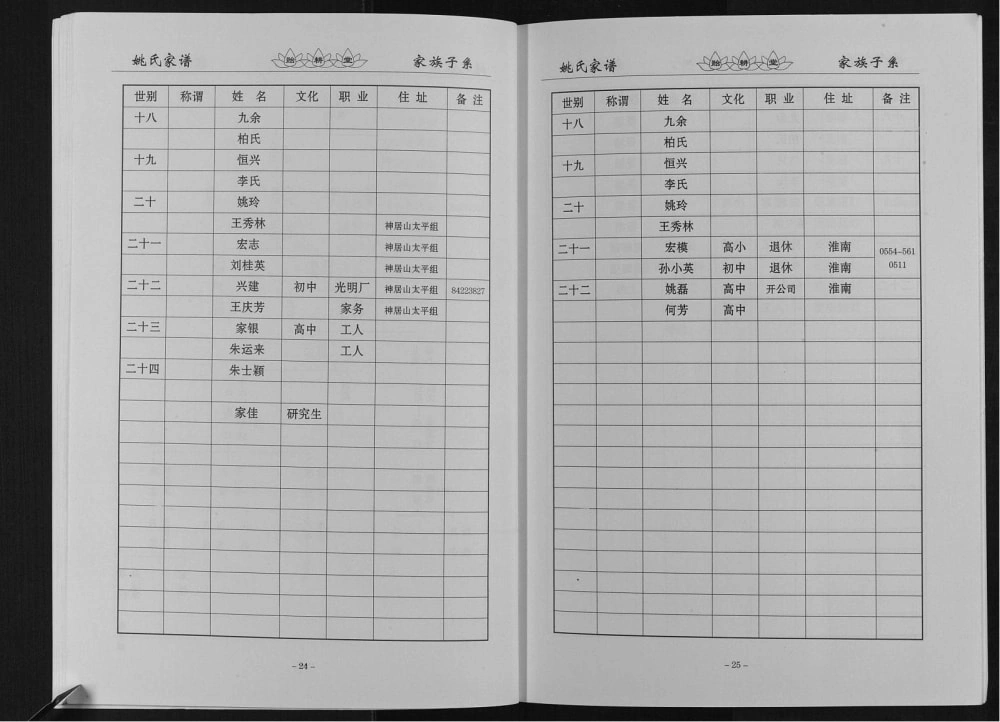 姚氏家谱 贻耕堂 家族子系
世别 称谓 姓名 文化 职业 住址 备注
十八 九余
柏氏
十九 恒兴
李氏
二十 姚玲
王秀林 神居山太平组
二十一 宏志 神居山太平组
刘桂英 神居山太平组
二十二 兴建 初中 光明厂 神居山太平组 84223827
王庆芳 家务 神居山太平组
二十三 家银 高中 工人
朱运来 工人
二十四 朱士颖
家佳 研究生
-24-
姚氏家谱 贻耕堂 家族子系
世别 称谓 姓名 文化 职业 住址 备注
十八 九余
柏氏
十九 恒兴
李氏
二十 姚玲
王秀林
二十一 宏模 高小 退休 淮南 0554-561
孙小英 初中 退休 淮南 0511
二十二 姚磊 高中 开公司 淮南
何芳 高中
-25-